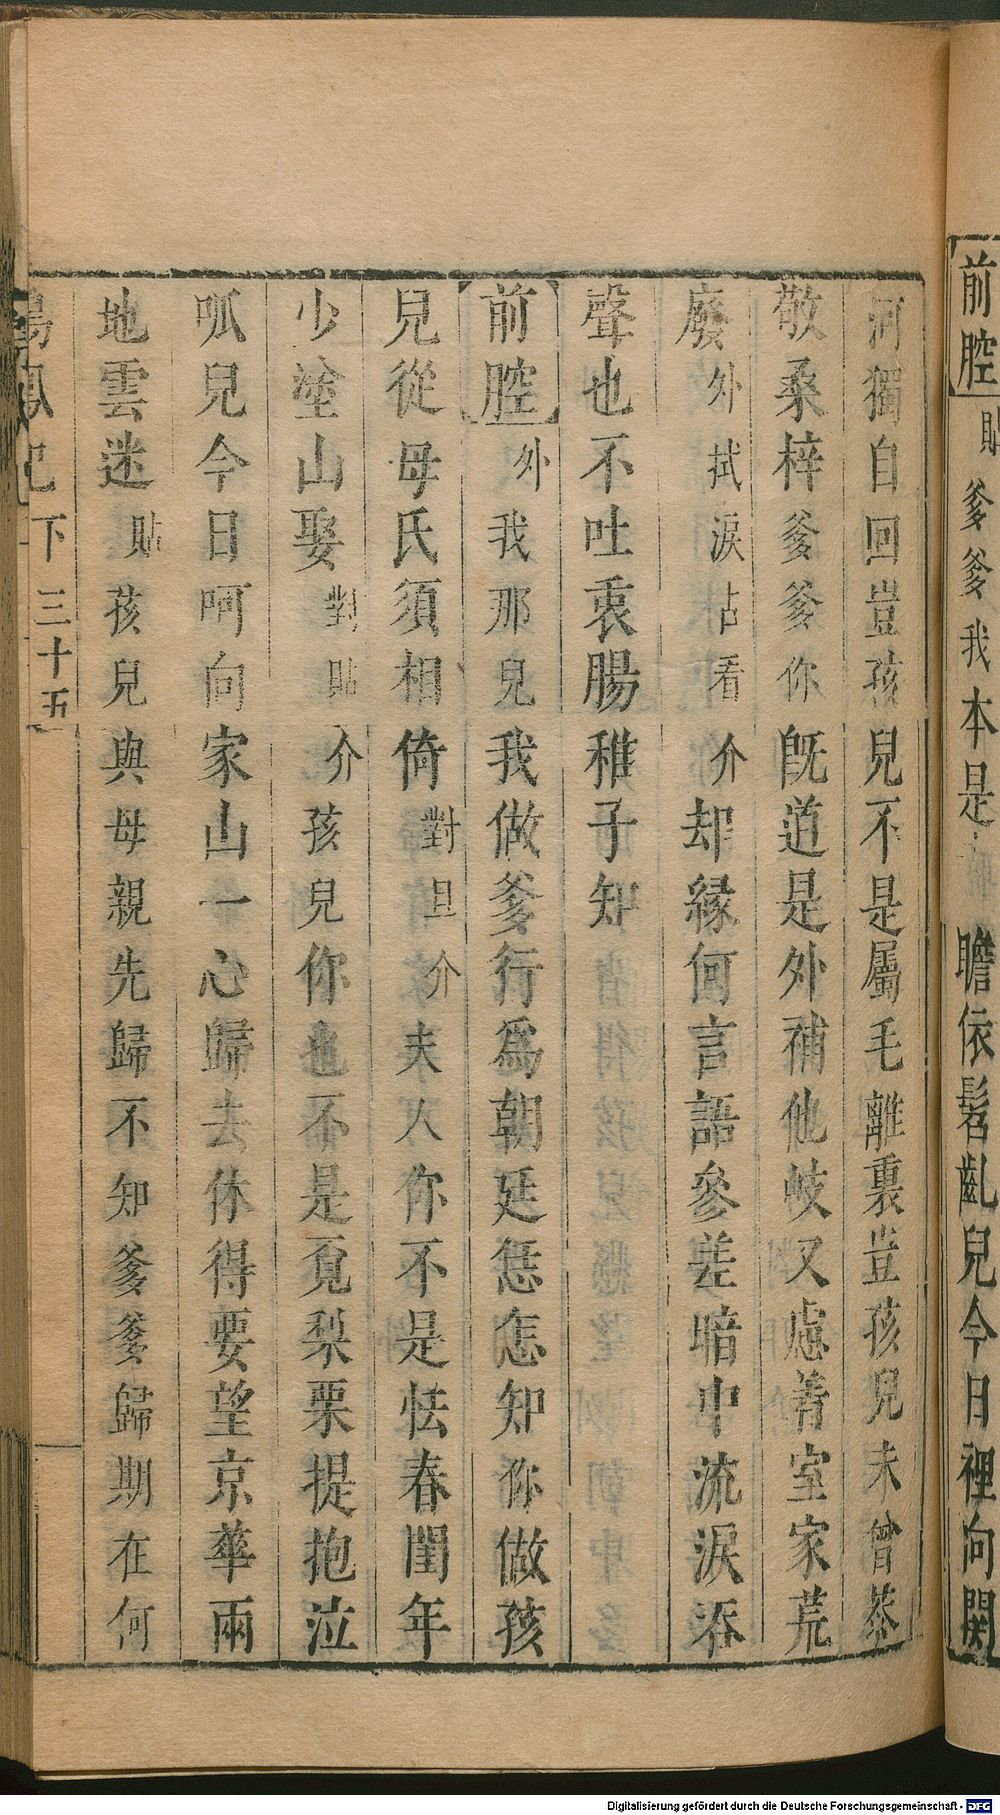 前腔 貼 爹爹我本是 瞻依髫齓兒今日裡向關
河獨自回豈孩兒不是屬毛離裏豈孩兒未曾恭
敬桑梓爹爹你旣道是外補他岐又慮着室家荒
廢 外拭淚占看介 却緣何言語參差暗中流淚吞
聲也不吐衷腸稚子知
前腔 外 我那兒我做爹行爲朝廷怎知你做孩
兒從母氏須相倚 對旦介 夫人你不是怯春閨年
少塗山娶 對貼介 孩兒你也不是覔梨栗提抱泣
呱兒今日呵向家山一心歸去休得要望京華兩
地雲迷 貼 孩兒與母親先歸不知爹爹歸期在何
鳴鳳記 下 三十五
Digitalisierung gefördert durch die Deutsche Forschungsgemeinschaft - DFG